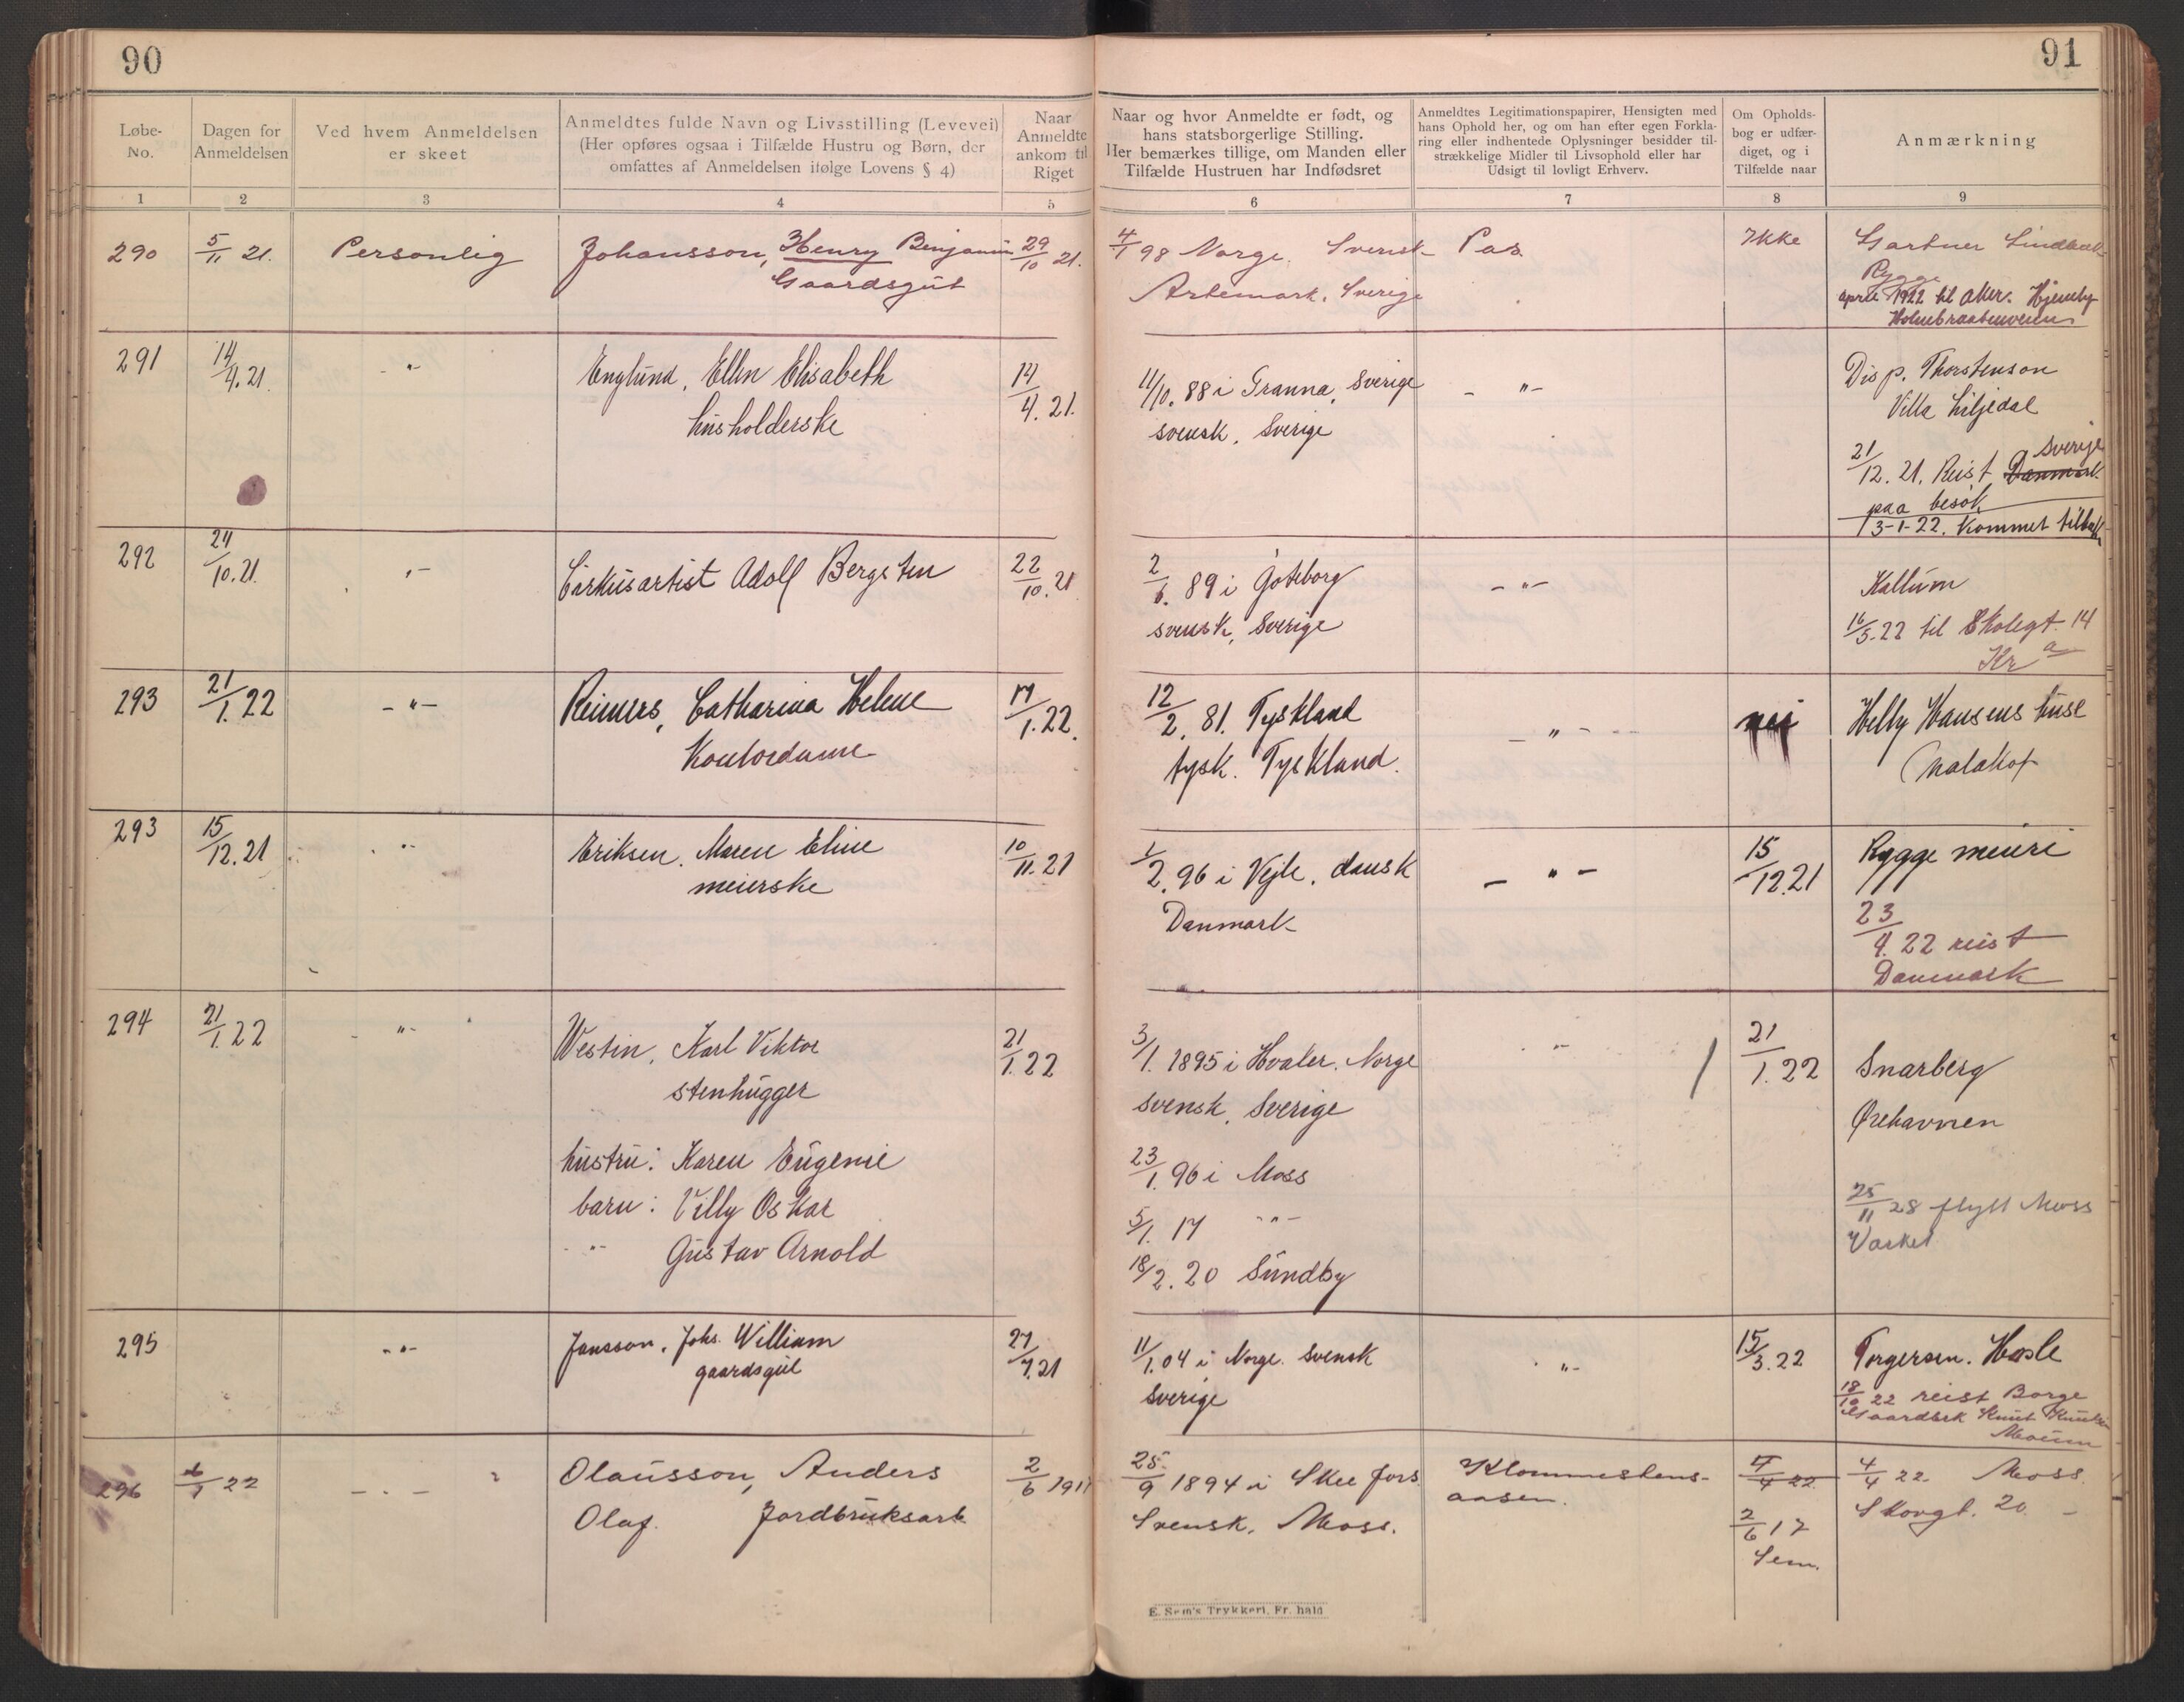 90
91
Løbe-
No.
Dagen for
Anmeldelsen
Ved hvem Anmeldelsen
er skeet
Anmeldtes fulde Navn og Livsstilling (Levevei)
(Her opføres ogsaa i Tilfælde Hustru og Børn, der
omfattes af Anmeldelsen ifølge Lovens § 4)
Naar
Anmeldte
ankom til
Riget
Naar og hvor Anmeldte er født, og
hans statsborgerlige Stilling.
Her bemærkes tillige, om Manden eller
Tilfælde Hustruen har Indfødsret
Anmeldtes Legitimationspapirer, Hensigten med
hans Ophold her, og om han efter egen Forkla-
ring eller indhentede Oplysninger besidder til-
strækkelige Midler til Livsophold eller har
Udsigt til lovligt Erhverv.
Om Opholds-
bog er udfær-
diget, og i
Tilfælde naar
Anmærkning
1 2 3 4 5 6 7 8 9
290 5/11 21. Personlig Johansson, Henry Benjamin 29/10 21. 4/1 98 Norge. Svensk Pas Ikke Gartner Lindbæk
Gaardsgut Artemark, Sverige Rygge
april 1922 til Aker. Hjemby
Holmebraatenveien
291 14/4.21. - " - Englund, Ellen Elisabeth 14/4.21. 11/10.88 i Granna, Sverige - " - Disp. Thorstenson
husholderske svensk, Sverige Villa Liljedal
21/12.21. Reist Danmark Sverige
paa besøk
13-1-22. Kommet tilbake
292 24/10.21. " - Cirkusartist Adolf Bergsten 22/10.21 2/6.89 i Gøteborg - " - Kallum
svensk, Sverige 16/5.22 til Skolegt. 14
Kra
293 21/1.22 - " - Reimers, Catharina Helene 17/1.22. 12/2.81. Tyskland - " - nei Helly Hansens huse
Kontordame tysk. Tyskland. Malakof
293 15/12.21 " - Eriksen. Maren Eline 10/11.21 1/2.96 i Vejle, dansk - " - 15/12.21 Rygge meieri
meierske Danmark 23/4.22 reist
Danmark
294 21/1.22 - " - Westin, Karl Viktor 21/1.22 3/1.1895 i Hvaler. Norge " - 21/1.22 Snarberg
stenhugger svensk, Sverige Ørehavnen
hustru: Karen Eugenie 23/1.96 i Moss
barn: Villy Oskar 5/1.17 - " - 25/11 28 flytt Moss
- " - Gustav Arnold 18/2.20 Sundby Varkel
295 - " - Jansson, Johs. William 27/7.21 11/1.04 i Norge. svensk " - 15/3.22 Torgersen. Hasle
gaardsgut Sverige 18/10 22 reist Borge
Gaardbrk Knut Knutsen
Moum
296 22 - . - Olausson, Anders 2/6 1917 25/9 1894 i Skee fors. Klommestens- 4/4 22 4/4 22 Moss.
Olaf. Jordbruksarb Svensk. Moss. aasen. 2/6 17 Skovgt. 20. -
Sem.
E. Sem's Trykkeri, Fr. hald